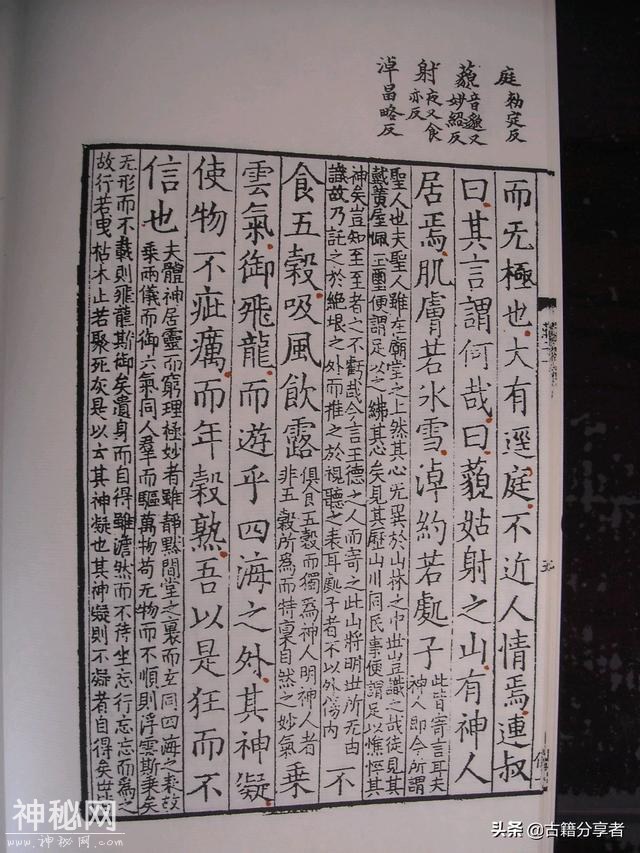 庭 勑定反
藐 音邈又
妙紹反
射 夜又食
亦反
淖 昌略反
而无極也大有逕庭不近人情焉連叔
曰其言謂何哉曰藐姑射之山有神人
居焉肌膚若氷雪淖約若處子
此皆寄言耳夫
神人即今所謂
聖人也夫聖人雖在廟堂之上然其心无異於山林之中世豈識之哉徒見其
戴黃屋佩玉璽便謂足以紼其心矣見其歷山川同民事便謂足以憔悴其
神矣豈知至至者之不虧哉今言王德之人而寄之此山將明世所无由
識故乃託之於絶垠之外而推之於視聽之表耳處子者不以外傷內
不
食五穀吸風飲露
俱食五穀而獨爲神人明神人者
非五穀所爲而特稟自然之妙氣
乘
雲氣御飛龍而遊乎四海之外其神凝
使物不疵癘而年穀熟吾以是狂而不
信也
夫體神居靈而窮理極妙者雖靜默閒堂之裏而玄同四海之表故
乘兩儀而御六氣同人羣而驅萬物苟无物而不順則浮雲斯乘矣
无形而不載則飛龍斯御矣遺身而自得雖澹然而不待坐忘行忘忘而爲之
故行若曳枯木止若聚死灰是以云其神凝也其神凝則不凝者自得矣世
神秘网
www.神秘网.com
头条 @古籍分享者